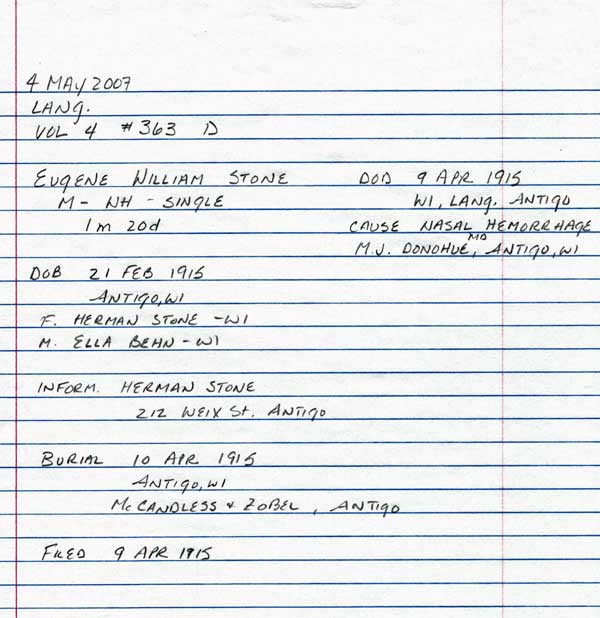 4 MAY 2007
LANG.
VOL 4 #363 D
EUGENE WILLIAM STONE
M - WH - SINGLE
1m 20d
DOD 9 APR 1915
WI, LANG. ANTIGO
CAUSE NASAL HEMORRHAGE
M.J. DONOHUE, MD ANTIGO, WI
DOB 21 FEB 1915
ANTIGO, WI
F. HERMAN STONE - WI
M. ELLA BEHN - WI
INFORM. HERMAN STONE
212 WEIX St. ANTIGO
BURIAL 10 APR 1915
ANTIGO, WI
McCANDLESS & ZOBEL, ANTIGO
FILED 9 APR 1915